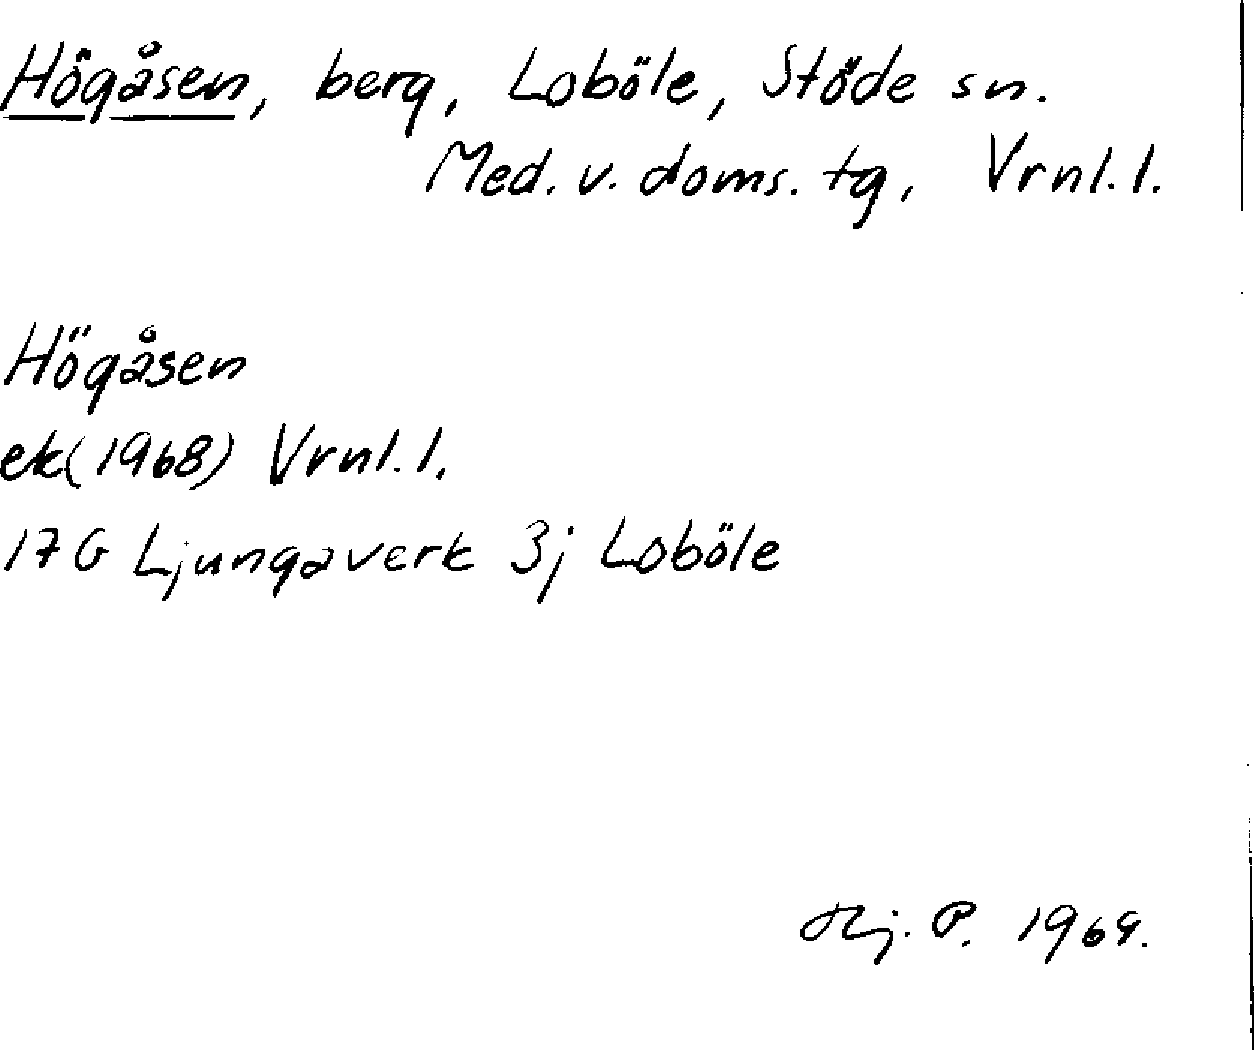 Högåsen, berg, Loböle, Stöde sn.
Med. v. doms. tg, Vrnl. l.
Högåsen
ek(1968) Vrnl. l.
17G Ljungaverk 3j Loböle
Hj. P. 1969.